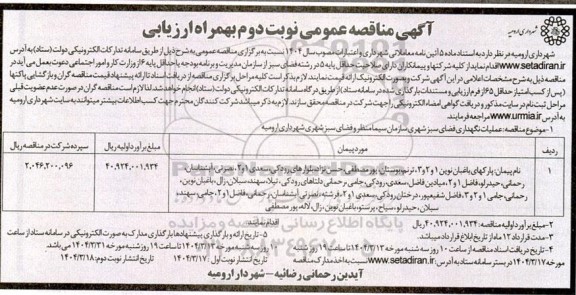 شهرداری ارومیه
آگهی مناقصه عمومی نوبت دوم بهمراه ارزیابی
شهرداری ارومیه در نظر دارد به استناد ماده ۵ آئین نامه معاملاتی شهرداری و اعتبارات مصوب سال ۱۴۰۴ نسبت به برگزاری مناقصه عمومی به شرح ذیل از طریق سامانه تدارکات الکترونیکی دولت (ستاد) به آدرس
www.setadiran.ir اقدام نماید از کلیه شرکتها و پیمانکاران دارای صلاحیت حداقل پایه ۵ در رشته فضای سبز از سازمان مدیریت و برنامه بودجه یا حداقل پایه ۶ از وزارت کار و امور اجتماعی دعوت بعمل می آید در
مناقصه ذیل به شرح مشخصات اعلامی در این آگهی شرکت و بصورت الکترونیک ارائه قیمت نمایند. لازم بذکر است کلیه مراحل برگزاری مناقصه از دریافت اسناد تا ارائه پیشنهاد قیمت مناقصه گران و بازگشایی پاکتها
(پس از کسب امتیاز حداقل ۶۵ از فرم ارزیابی و مستندات بارگذاری شده در سامانه ستاد) از طریق درگاه سامانه تدارکات الکترونیکی دولت (ستاد) انجام خواهد شد. لذا لازم است مناقصه گران در صورت عدم عضویت قبلی
مراحل ثبت نام در سایت مذکور و دریافت گواهی امضاء الکترونیکی را جهت شرکت در مناقصه محقق سازند. لازم به ذکر میباشد شرکت کنندگان محترم جهت کسب اطلاعات بیشتر میتوانند به سایت شهرداری ارومیه
www.urmia.ir مراجعه فرمایند.
۱-موضوع مناقصه: عملیات نگهداری فضای سبز شهری سازمان سیما منظر و فضای سبز شهری شهرداری ارومیه
ردیف مورد پیمان مبلغ برآورد اولیه ریال سپرده شرکت در مناقصه ریال
۱ نام پیمان: پارکهای باغبان نوین ۱و۲و۳، ترنم، بوستان، پور مصطفی، حسن نژاد، بلوارهای رودکی، سعدی ۱و۲، نصرتی، آبشناسان، ۴۰,۹۲۴,۰۰۱,۹۳۴ ۲,۰۴۶,۲۰۰,۰۹۶
رحمانی، حیدرلو، فاضل ۱و۲، میادین فاضل، سعدی، رودکی، جامی، رحمانی، دلتاهای رودکی، نیلا، سهند، سبلان، زال، باغبان نوین،
رحمانی، جامی ۱و۲و۳، فاضل، شفیعپور، درختان رودکی، سعدی ۱و۲، فرشته، نصرتی، آبشناسان، رحمانی، فاضل ۱و۲، جامی، سهند،
سبلان، حیدرلو، سیاح، پرستو، باغبان نوین، زال، لاله، پور مصطفی
۲-مبلغ برآورد اولیه مناقصه: ۴۰,۹۲۴,۰۰۱,۹۳۴ ریال
۳-مدت قرارداد ۱۲ ماه از تاریخ ابلاغ قرارداد میباشد.
۴- تاریخ دریافت اسناد مناقصه از ساعت ۱۰ روز سه شنبه مورخه ۱۴۰۴/۳/۱۳ تا ساعت ۱۹ روز شنبه
مورخه ۱۴۰۴/۳/۱۷ در بستر سامانه ستاد به آدرس www.setadiran.ir نسبت به اخذ مدارک مناقصه
اقدام نمایند.
۵-تاریخ ارائه و بارگذاری پیشنهادها: بارگذاری مدارک به صورت الکترونیکی در سامانه ستاد از ساعت
۱۰ روز سه شنبه مورخه ۱۴۰۴/۳/۱۳ تا ساعت ۱۹ روز شنبه مورخه ۱۴۰۴/۳/۳۱ می باشد.
تاریخ انتشار نوبت اول: ۱۴۰۴/۳/۱۷ تاریخ انتشار نوبت دوم: ۱۴۰۴/۳/۱۸
آیدین رحمانی رضائیه - شهردار ارومیه
پایگاه اطلاع رسانی مناقصه و مزایده